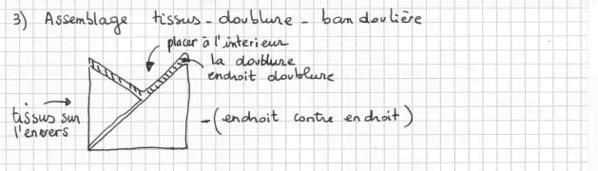 3) Assemblage tissus - doublure - bandoulière
placer à l'interieur
la doublure
endroit doublure
tissus sur
l'envers
- (endroit contre endroit)